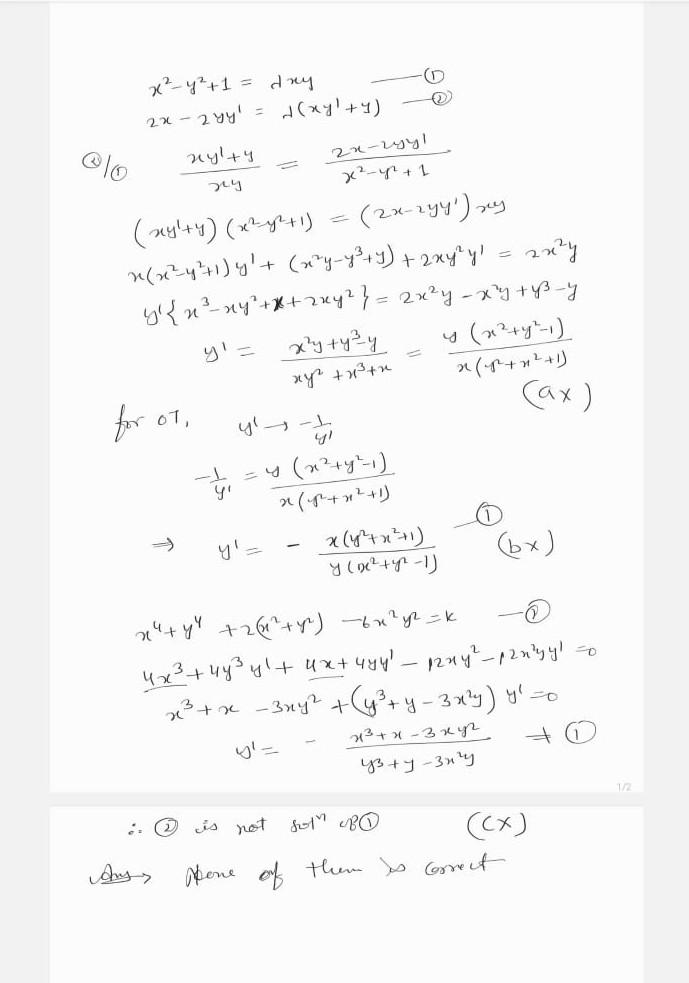 x²-y²+1 = λxy —①
2x-2yy' = λ(xy'+y) —②
②/① (xy'+y)/(xy) = (2x-2yy')/(x²-y²+1)
(xy'+y)(x²-y²+1) = (2x-2yy')xy
x(x²-y²+1)y' + (x²y-y³+y) + 2xy²y' = 2x²y
y'{x³-xy²+x+2xy²} = 2x²y-x²y+y³-y
y' = (x²y+y³-y)/(xy²+x³+x) = y(x²+y²-1)/x(y²+x²+1)
(ax)
for OT, y' → -1/y'
-1/y' = y(x²+y²-1)/x(y²+x²+1)
⇒ y' = - x(y²+x²+1)/y(x²+y²-1) —① (bx)
x⁴+y⁴+2(x²+y²)-6x²y²=k —②
4x³+4y³y'+4x+4yy'-12xy²-12x²yy'=0
x³+x-3xy²+(y³+y-3x²y)y'=0
y' = - (x³+x-3xy²)/(y³+y-3x²y) ≠ ①
1/2
∴ ② is not solⁿ of ① (cx)
Ans→ None of them is correct